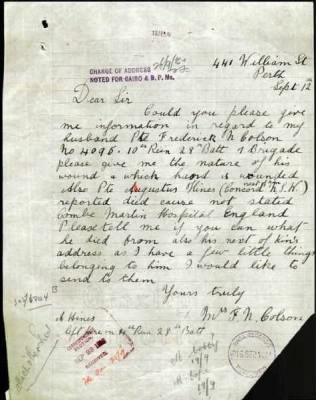 441 William St
Perth
Sept 12
CHANGE OF ADDRESS
NOTED FOR CAIRO & B.P. Mo.
Dear Sir
Could you please give
me information in regard to my
husband Pte Frederick N Colson
No 4096. 10th Rein 28th Batt 7 Brigade
please give me the nature of his
wound & which hand is wounded
Also Pte Augustus Hines (Concord N.S.W.)
reported died cause not stated
Combe Martin Hospital England
Please tell me if you can what
he died from also his next of kin's
address as I have a few little things
belonging to him I would like to
send to them
Yours truly
Mrs F. N. Colson
A Hines
10th Rein 28th Batt